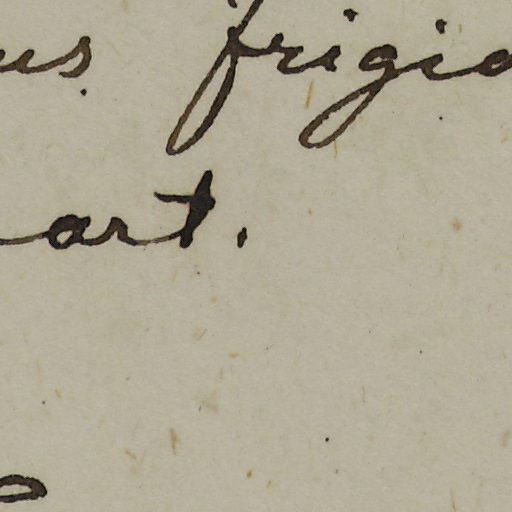 us frigi
art.